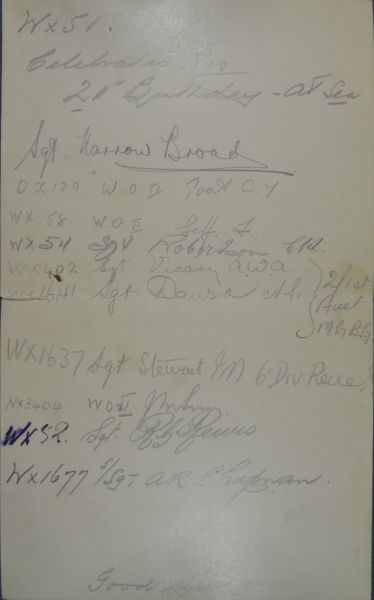 WX51.
Celebrates his
21st Birthday - At Sea
Sgt Narrow Broad
D.X129 W.O II Toat C.Y.
WX.58 W.O II Jeff. F.
WX54 Sgt Robertson
WX402 Sgt Vicary A.W.A.
WX1641 Sgt Dawson A.S.
2/1st
Aust
M.B.G.
WX1637 Sgt Stewart 6 Div Recce.
NX3404 W.O.II
WX32. Sgt.
WX1677 S/Sgt A.R. Chapman.
Good